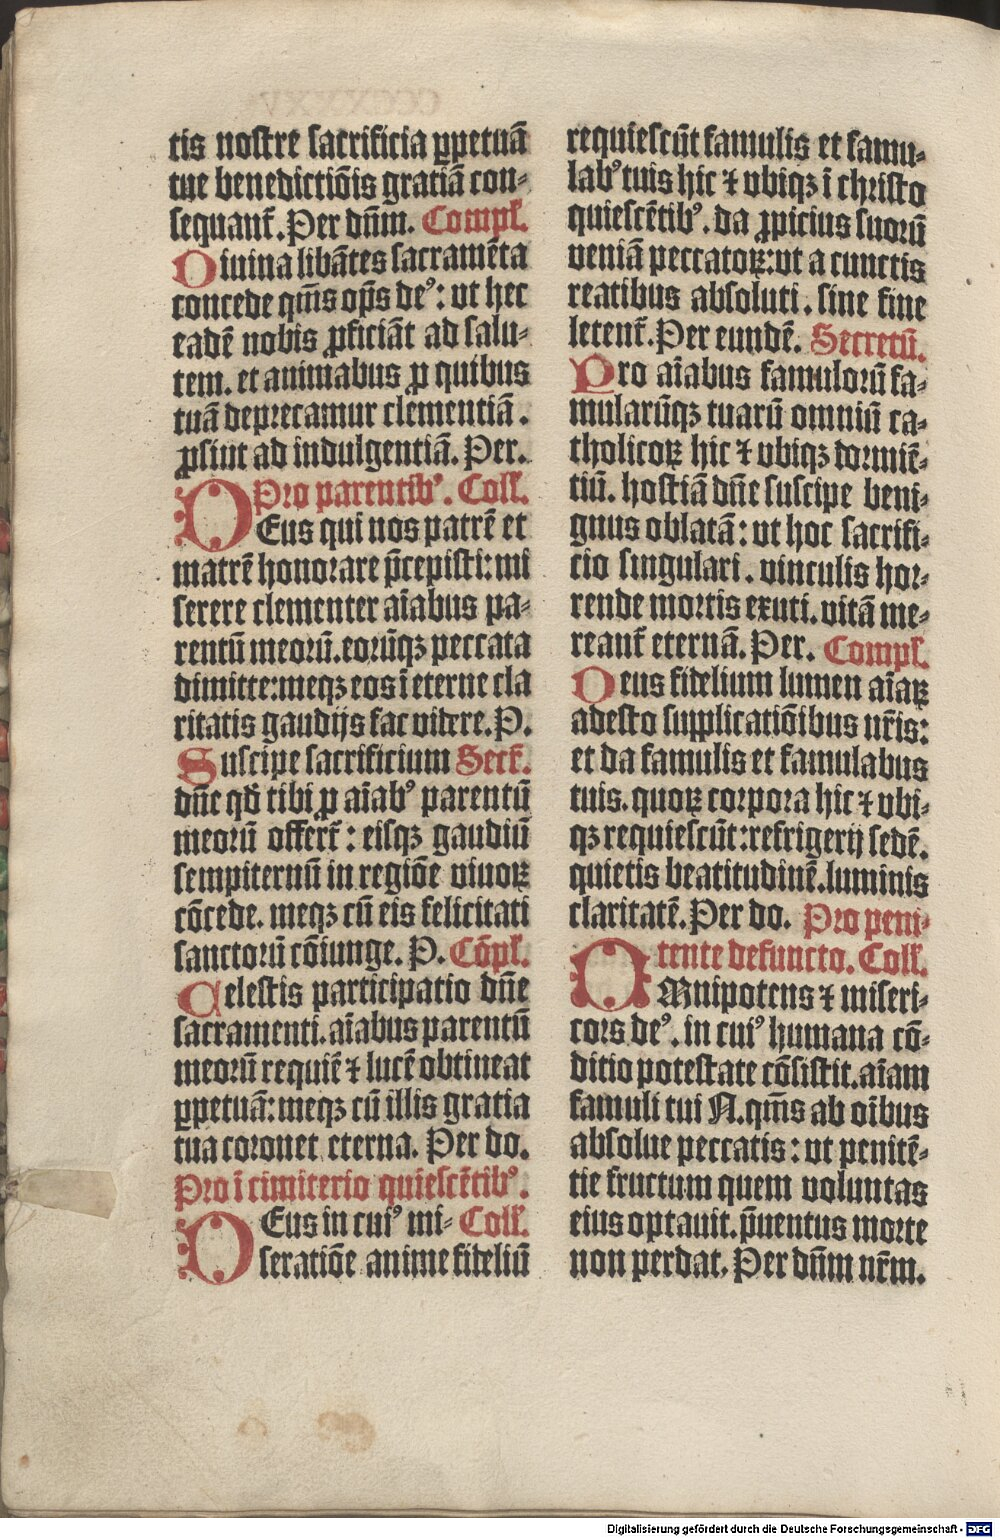 tis nostre sacrificia ꝑpetuā
tue benedictiōis gratiā con⸗
sequant᷑. Per dn̄m. Compl᷑.
Diuina libātes sacramēta
concede qm̄s op̄s deꝰ: vt hec
eadē nobis ꝓficiāt ad salu⸗
tem. et animabus ꝓ quibus
tuā deprecamur clementiā.
ꝓsint ad indulgentiā. Per.
Pro parentibꝰ. Coll᷑.
DEus qui nos patrē et
matrē honorare p̄cepisti: mi
serere clementer aīabus pa⸗
rentū meorū. eorūqꝫ peccata
dimitte: meqꝫ eos ī eterne cla
ritatis gaudijs fac videre. P.
Suscipe sacrificium Secr᷑.
dn̄e qd̄ tibi ꝓ aīabꝰ parentū
meorū offert᷑: eisqꝫ gaudiū
sempiternū in regiōe viuoꝝ
cōcede. meqꝫ cū eis felicitati
sanctorū cōiunge. P. Cōpl᷑.
Celestis participatio dn̄e
sacramenti. aīabus parentū
meorū requiē ⁊ lucē obtineat
ꝑpetuā: meqꝫ cū illis gratia
tua coronet eterna. Per do.
Pro ī cimiterio quiescētibꝰ.
DEus in cuiꝰ mi⸗ Coll᷑.
seratiōe anime fideliū
requiescūt famulis et famu⸗
labꝰ tuis hic ⁊ vbiqꝫ ī christo
quiescētibꝰ. da ꝓpicius suorū
veniā peccatoꝝ: vt a cunctis
reatibus absoluti. sine fine
letent᷑. Per eundē. Secretū.
Pro aīabus famulorū fa⸗
mularūqꝫ tuarū omniū ca⸗
tholicoꝝ hic ⁊ vbiqꝫ dormiē⸗
tiū. hostiā dn̄e suscipe beni⸗
gnus oblatā: vt hoc sacrifi⸗
cio singulari. vinculis hor⸗
rende mortis exuti. vitā me⸗
reant᷑ eternā. Per. Compl᷑.
Deus fidelium lumen aīaꝝ
adesto supplicatiōibus nr̄is:
et da famulis et famulabus
tuis. quoꝝ corpora hic ⁊ vbi⸗
qꝫ requiescūt: refrigerij sedē.
quietis beatitudinē. luminis
claritatē. Per do. Pro peni⸗
tente defuncto. Coll᷑.
OMnipotens ⁊ miseri⸗
cors deꝰ. in cuiꝰ humana cō⸗
ditio potestate cōsistit. aīam
famuli tui N. qm̄s ab oībus
absolue peccatis: vt penitē⸗
tie fructum quem voluntas
eius optauit. p̄uentus morte
non perdat. Per dn̄m nr̄m.
Digitalisierung gefördert durch die Deutsche Forschungsgemeinschaft - DFG